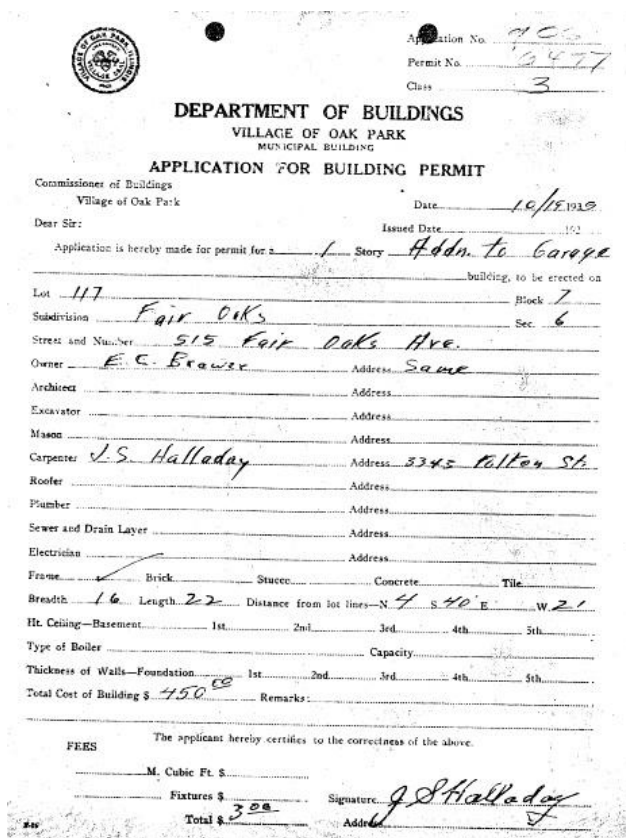 VILLAGE OF OAK PARK ILLINOIS
Application No.
Permit No. 6477
Class 3
DEPARTMENT OF BUILDINGS
VILLAGE OF OAK PARK
MUNICIPAL BUILDING
APPLICATION FOR BUILDING PERMIT
Commissioner of Buildings
Village of Oak Park
Date 10/19 1939
Dear Sir:
Issued Date 193
Application is hereby made for permit for a 1 Story Addn. to Garage
building, to be erected on
Lot 117 Block 7
Subdivision Fair Oaks Sec. 6
Street and Number 515 Fair Oaks Ave.
Owner E. C. Address Same
Architect Address
Excavator Address
Mason Address
Carpenter J. S. Halladay Address 3343 Fulton St.
Roofer Address
Plumber Address
Sewer and Drain Layer Address
Electrician Address
Frame ✓ Brick Stucco Concrete Tile
Breadth 16 Length 22 Distance from lot lines—N. 4 S 40' E W. 21
Ht. Ceiling—Basement 1st 2nd 3rd 4th 5th
Type of Boiler Capacity
Thickness of Walls—Foundation 1st 2nd 3rd 4th 5th
Total Cost of Building $ 450 00 Remarks:
The applicant hereby certifies to the correctness of the above.
FEES
M. Cubic Ft. $
Fixtures $
Signature J S Halladay
Total $ 3 00
Address